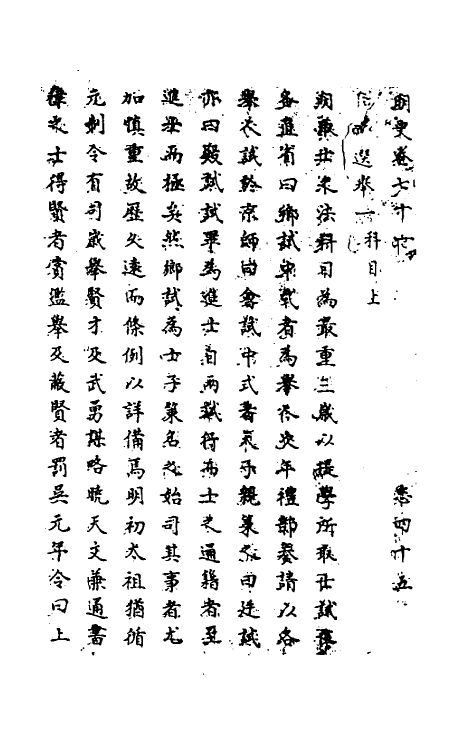 明史卷七十六 卷四十五
志 選舉一 科目上
明取士之法科目為最重三歲以提學所取士試舊
各直省曰鄉試中式者為舉人次年禮部奏請以各
舉人試於京師曰會試中式者天子親策之曰廷試
亦曰殿試試畢為進士自兩試行而士之通籍者至
進士而極矣然鄉試為士子策名之始司其事者尤
加慎重故歷久遠而條例以詳備焉明初太祖猶循
元制令有司歲舉賢才及武勇謀略曉天文兼通書
律之士得賢者賞濫舉及蔽賢者罰吳元年令曰上